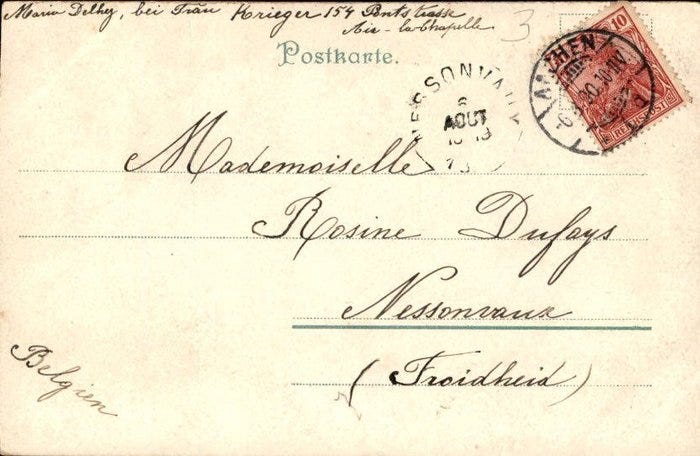 Maria Delhey, bei Frau Krieger 154 Pontstrasse
Aix-la-Chapelle
3
Postkarte.
NESSONVAUX
6
AOUT
AACHEN
10
REICHSPOST
Mademoiselle
Rosine Dufays
Nessonvaux
(Froidheid)
Belgien